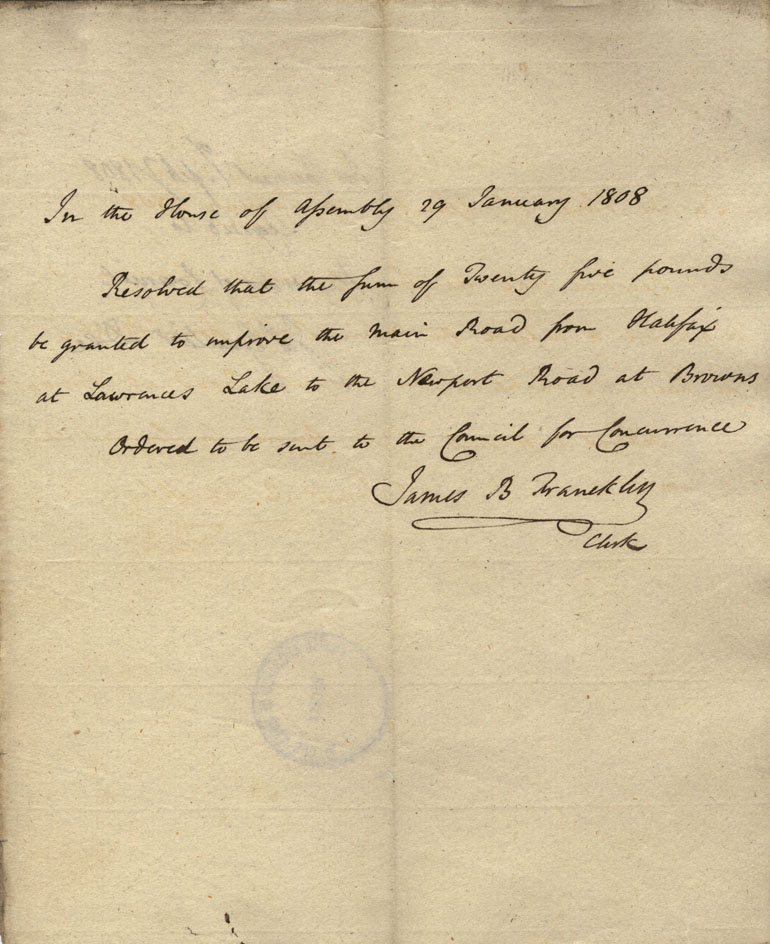 In the House of Assembly 29 January 1808
Resolved that the sum of Twenty five pounds
be granted to improve the Main Road from Halifax
at Lawrences Lake to the Newport Road at Browns
Ordered to be sent to the Council for Concurrence
James B Francklin
Clerk